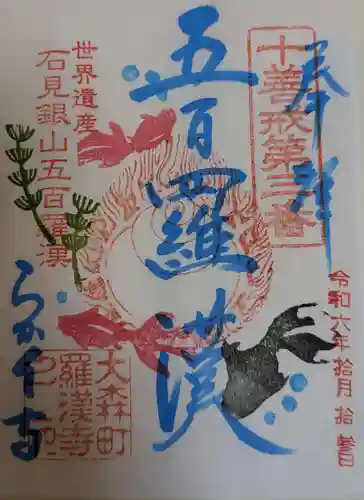 奉拝
十善戒第三番
五百羅漢
世界遺産
石見銀山五百羅漢
らかん寺
大森町
羅漢寺
令和六年拾月拾日